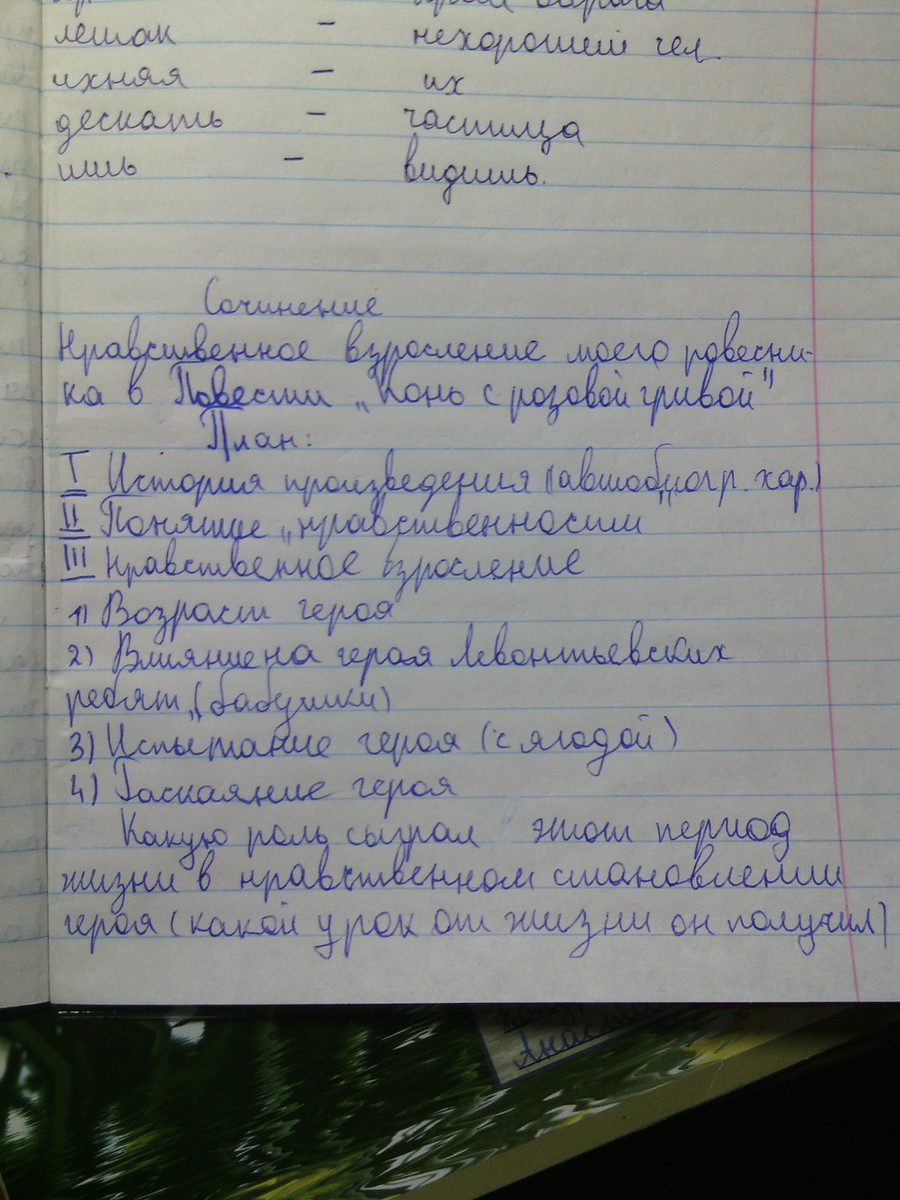 лешак – нехороший чел.
ихняя – их
дескать – частица
ишь – видишь.
Сочинение
Нравственное взросление моего ровесни-
ка в Повести „Конь с розовой гривой"
План:
I История произведения (автобиогр. хар.)
II Понятие „нравственности
III Нравственное взросление
1) Возраст героя
2) Влияние на героя Левонтьевских
ребят, (бабушки)
3) Испытание героя (с ягодой)
4) Раскаяние героя
Какую роль сыграл этот период
жизни в нравственном становлении
героя (какой урок от жизни он получил)